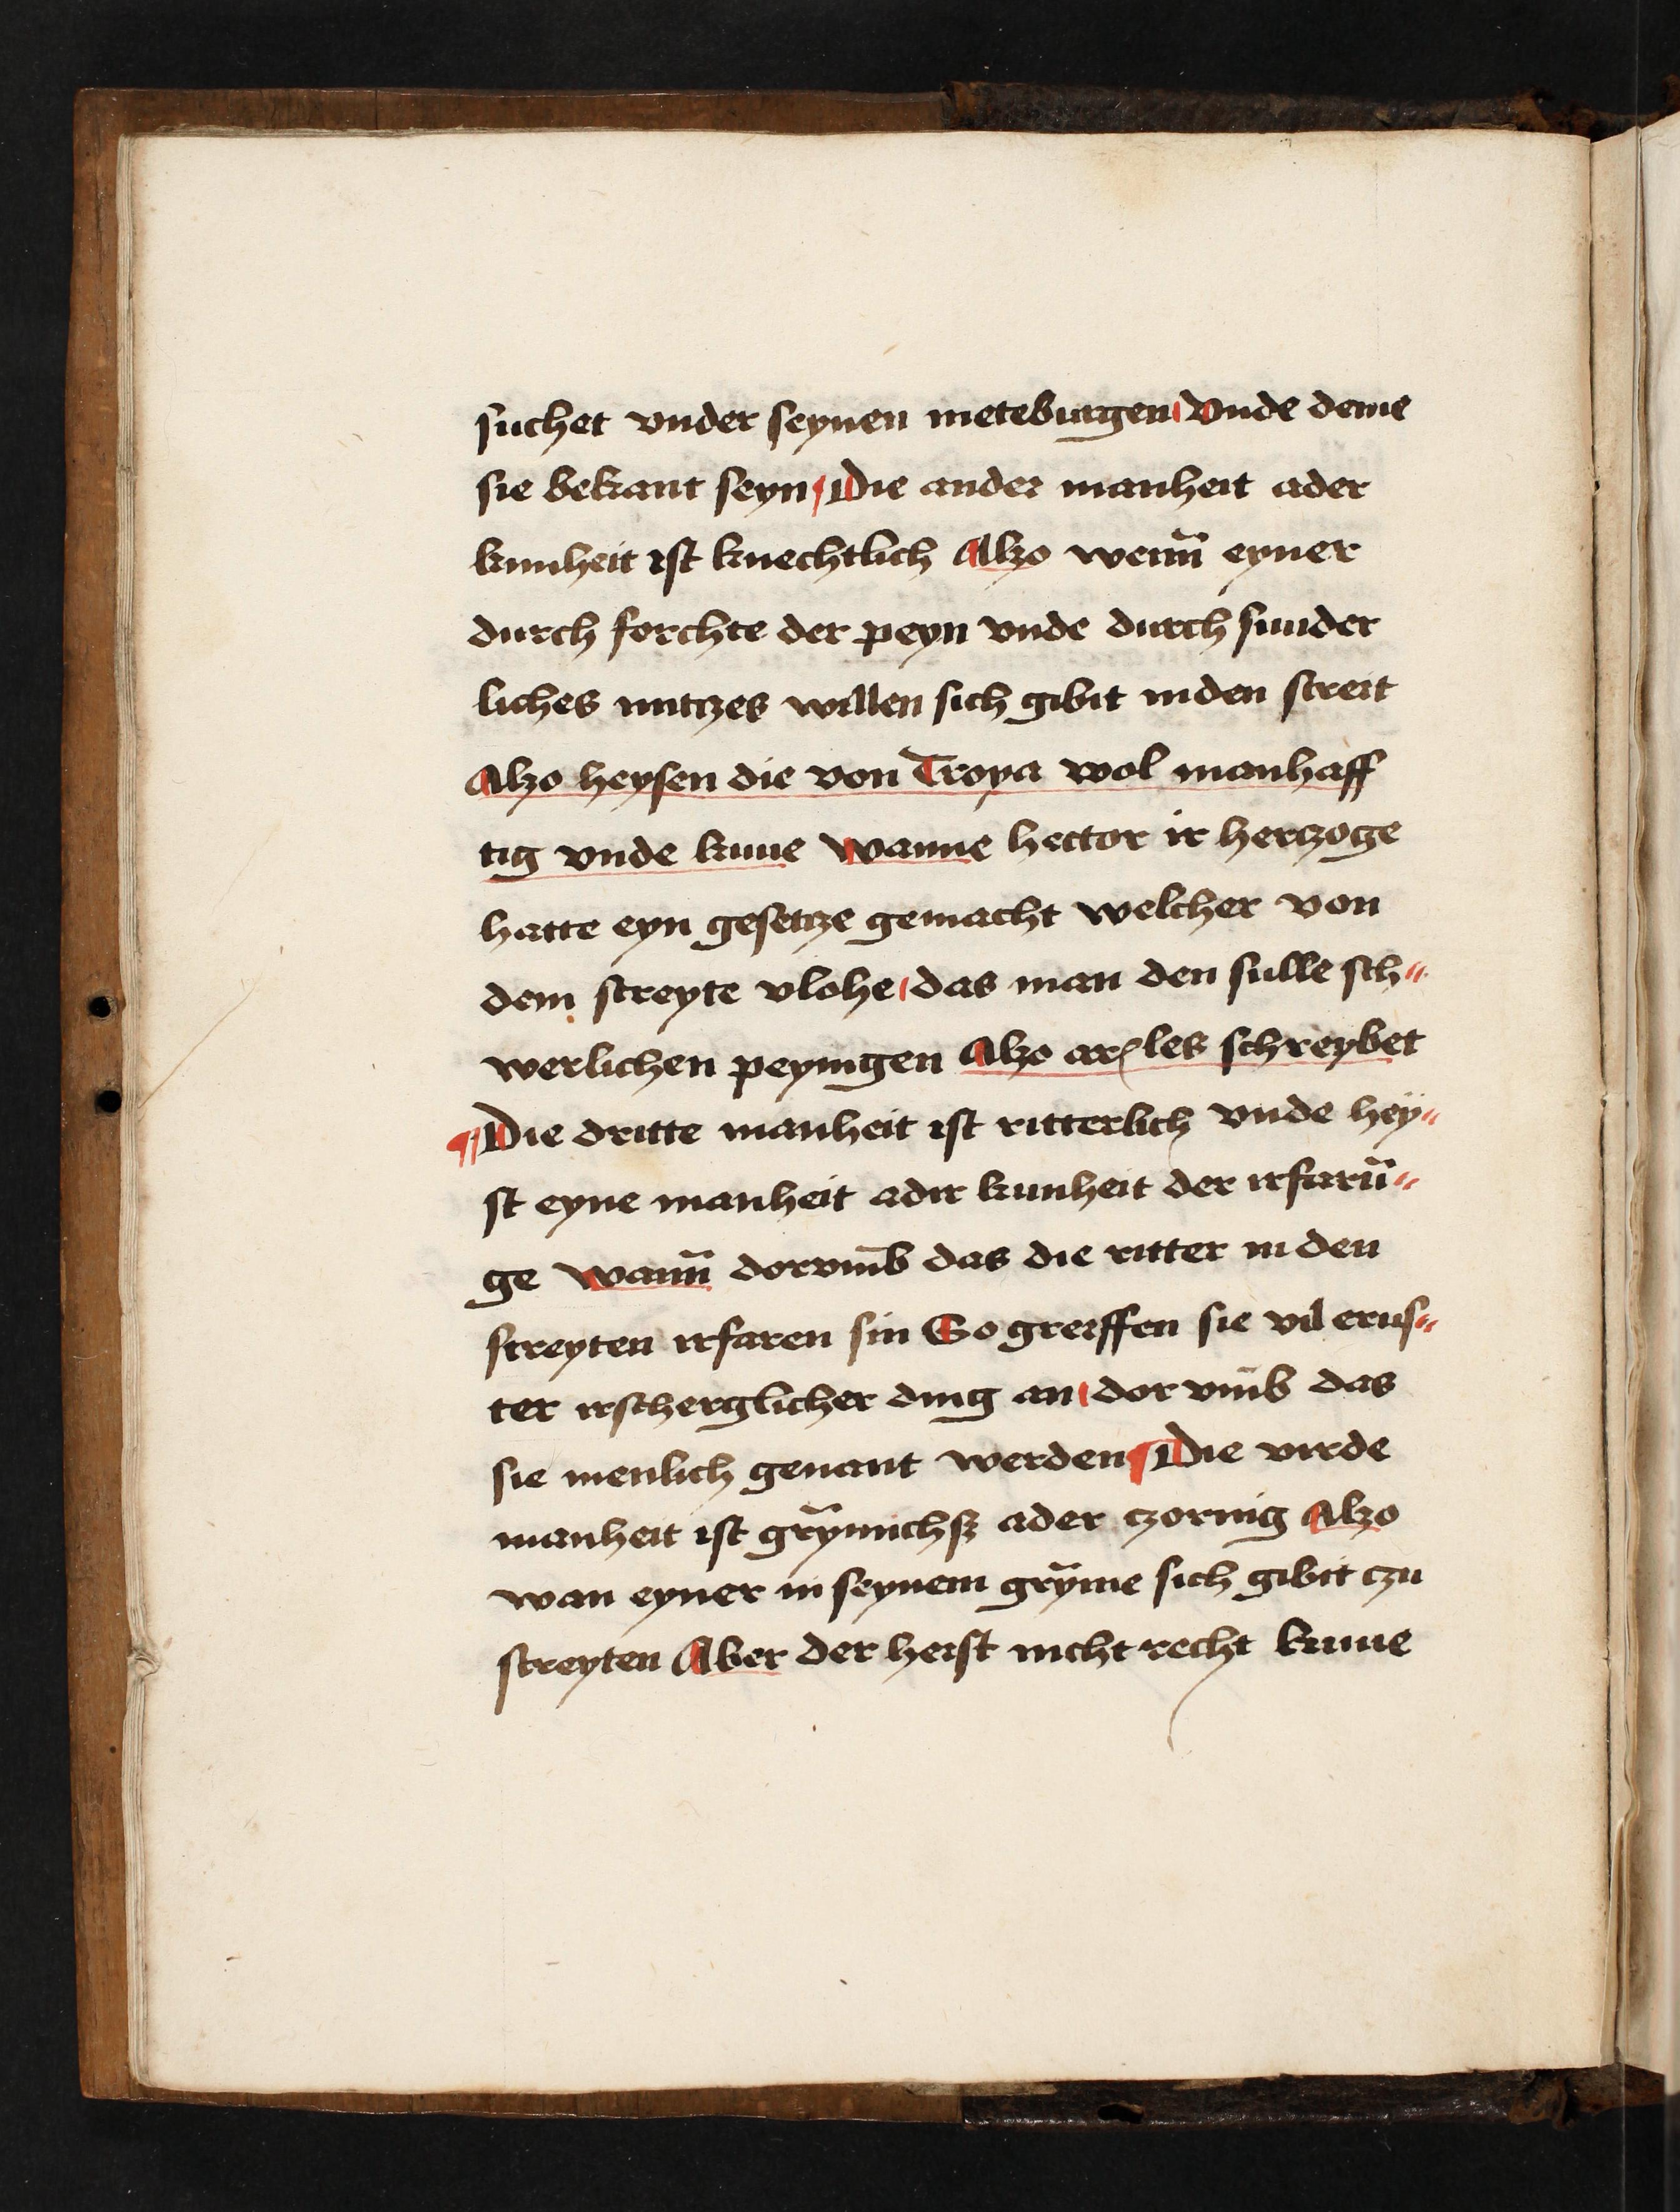 suchet vnder seynen meteburgen Vnde deme
sie bekant seyn Die ander manheit ader
kunheit ist knechtlich Alzo wenn̄ eyner
durch forchte der peyn vnde durch sunder
liches nutczes willen sich gibit inden streit
Alzo heysen die von Troya wol manhaff
tig vnde kune Wanne hector ir herczoge
hatte eyn gesetcze gemacht welcher von
dem streyte vlohe das man den sulle sch"
werlichen peyingen Alzo arles schreybet
¶ Die dritte manheit ist ritterlich vnde hey"
st eyne manheit adir kunheit der irfarū"
ge Wann̄ dorvm̄b das die ritter in den
streyten irfaren sin So greiffen sie vil erns"
ter irscherglicher ding an dor vm̄b das
sie menlich genant werden ¶ Die virde
manheit ist grymmichsz ader czornig Alzo
wan eyner in seynem gryme sich gibit czu
streyten Aber der heist nicht recht kune